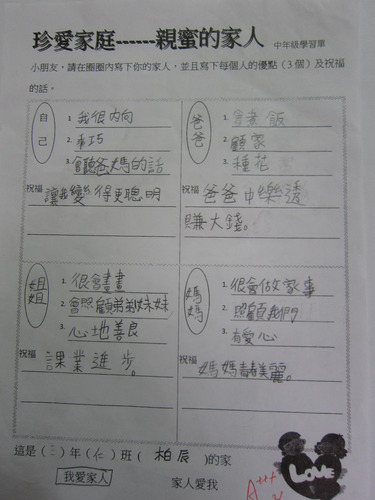 珍愛家庭------親蜜的家人 中年級學習單
小朋友，請在圈圈內寫下你的家人，並且寫下每個人的優點（3個）及祝福
的話。
自己
1. 我很內向
2. 乖巧
3. 會聽爸媽的話
祝福 讓我變得更聰明
爸爸
1. 會煮飯
2. 顧家
3. 種花
祝福 爸爸中樂透
賺大錢。
姐姐
1. 很會畫畫
2. 會照顧弟弟妹妹
3. 心地善良
祝福 課業進步。
媽媽
1. 很會做家事
2. 照顧我們
3. 有愛心
祝福 媽媽青春美麗。
這是（三）年（仁）班（柏辰）的家
我愛家人 家人愛我
LOVE
A+++